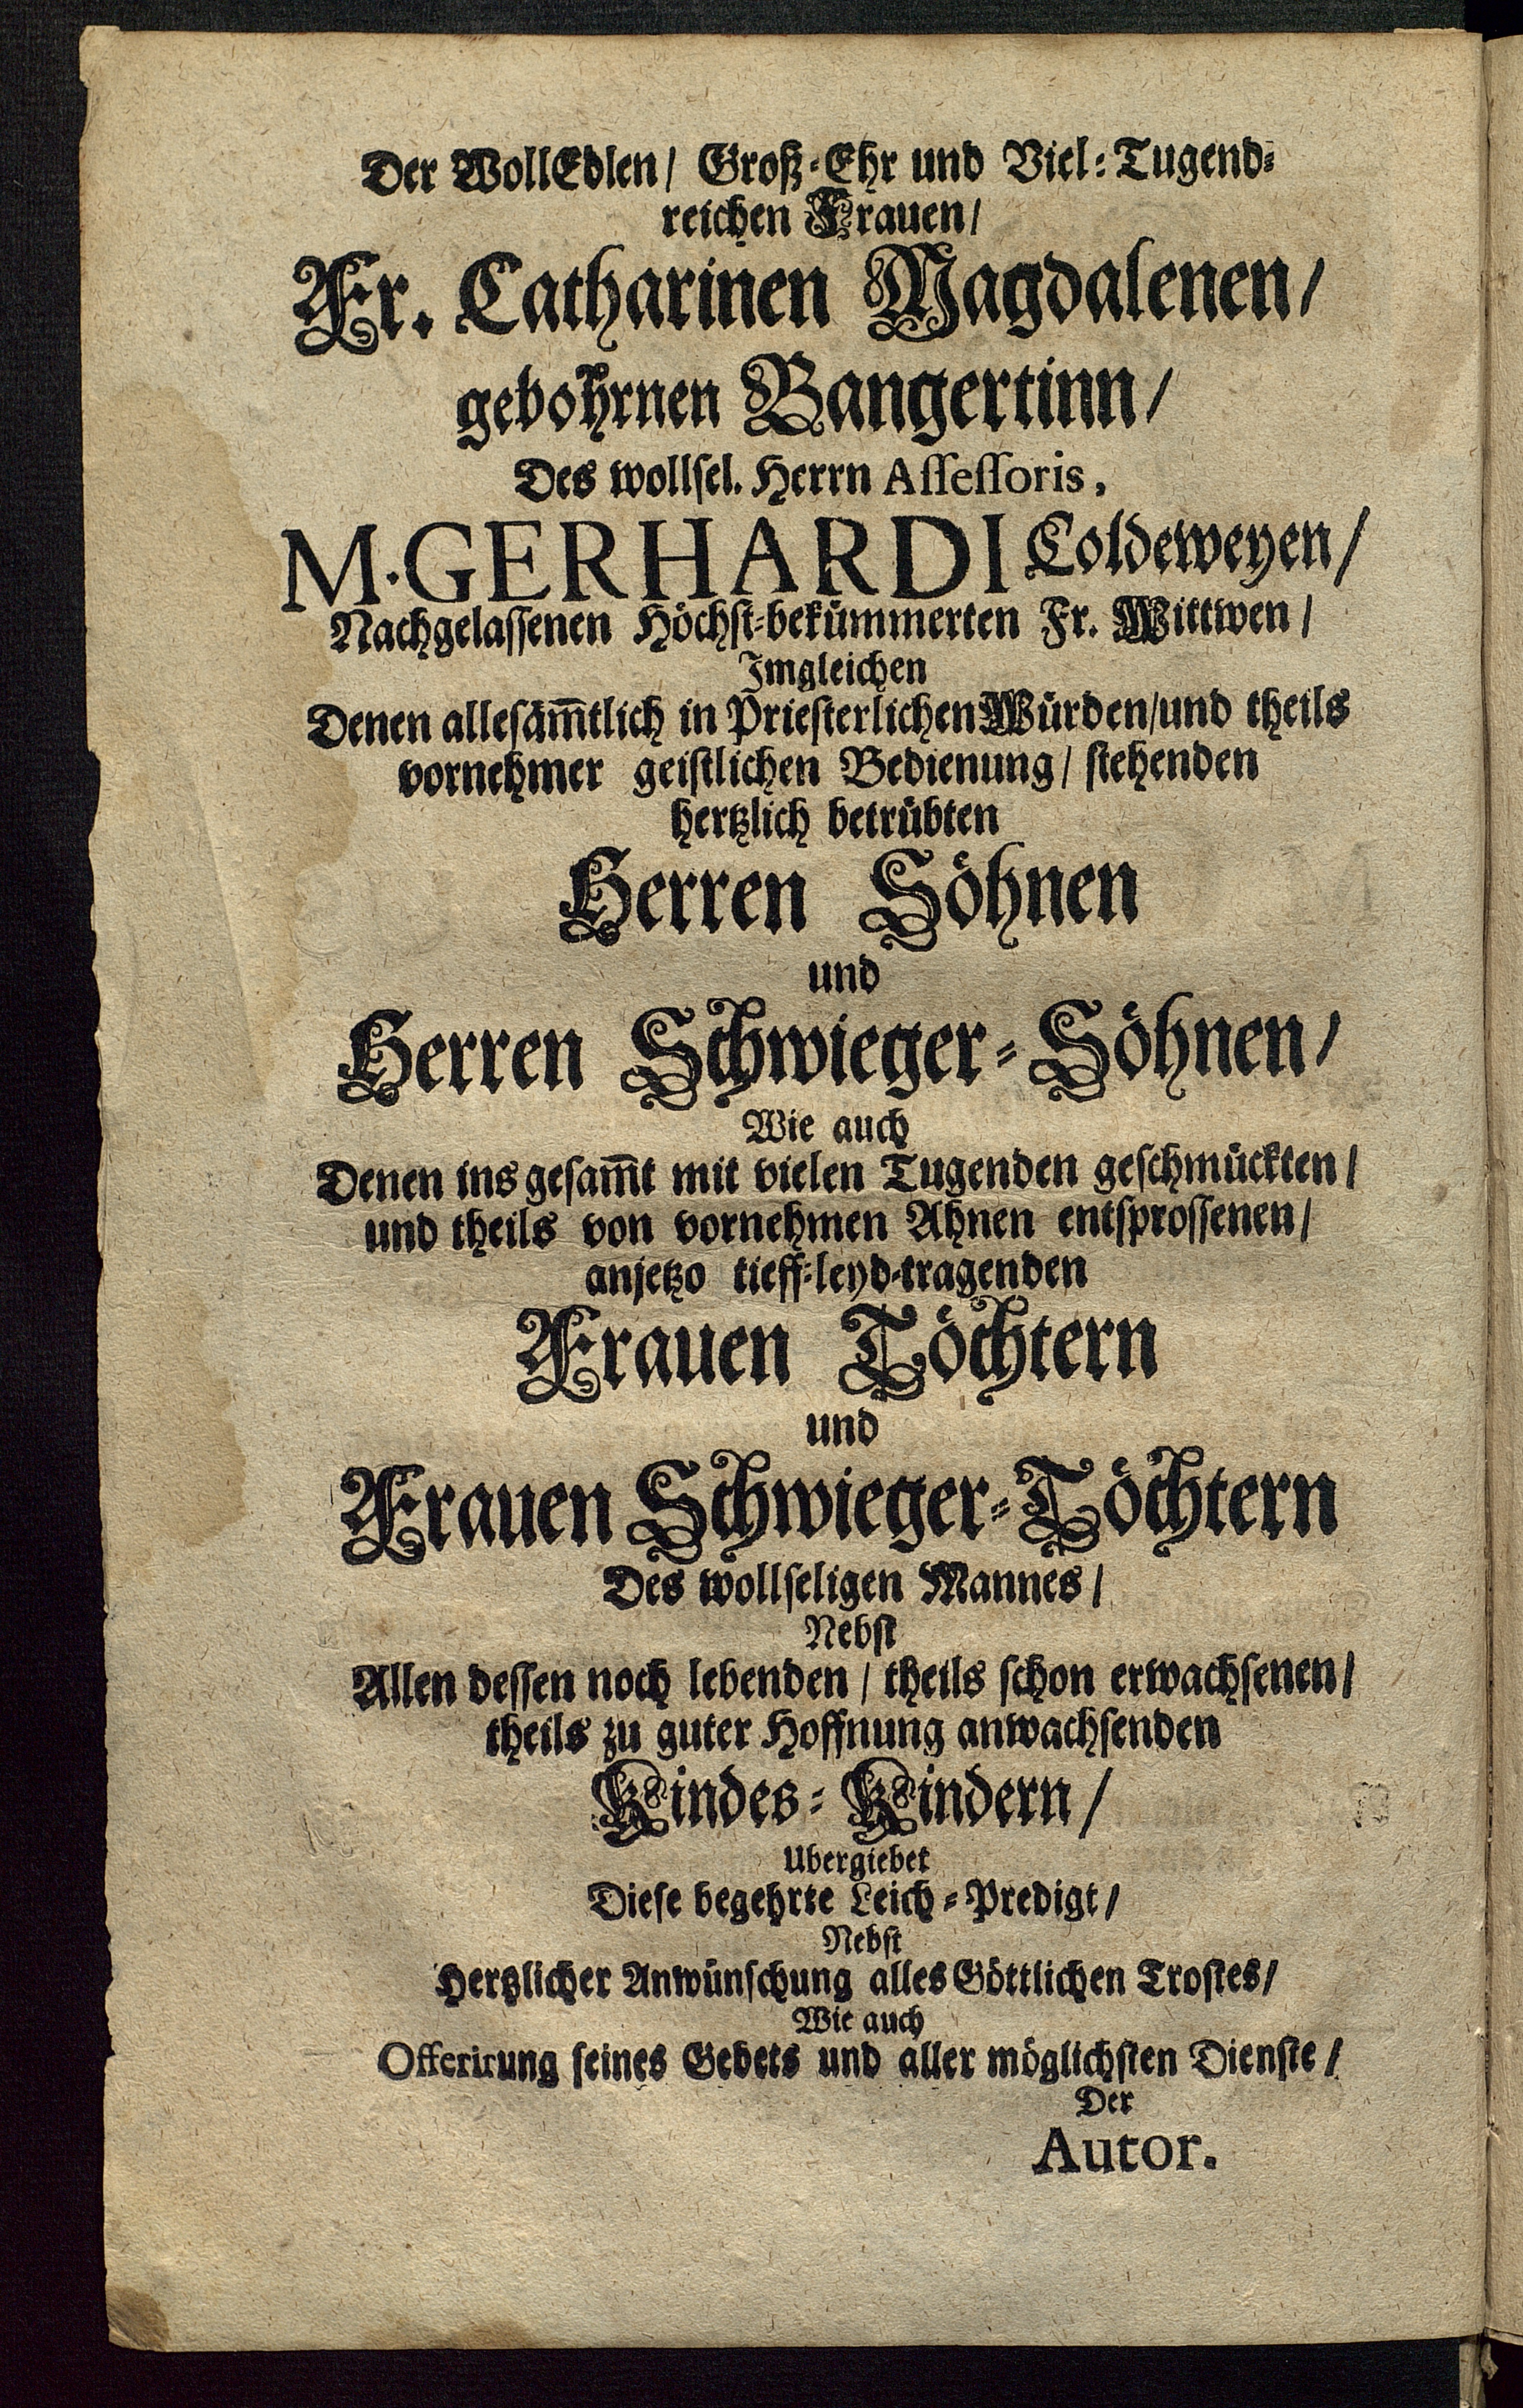 Der WollEdlen/ Groß-Ehr und Viel-Tugend-
reichen Frauen/
Fr. Catharinen Magdalenen/
gebohrnen Bangertinn/
Des wollsel. Herrn Assessoris,
M. GERHARDI Coldeweyen/
Nachgelassenen Höchst-bekümmerten Fr. Wittwen/
Imgleichen
Denen allesäm̃tlich in Priesterlichen Würden/und theils
vornehmer geistlichen Bedienung/ stehenden
hertzlich betrübten
Herren Söhnen
und
Herren Schwieger-Söhnen/
Wie auch
Denen ins gesam̃t mit vielen Tugenden geschmückten/
und theils von vornehmen Ahnen entsprossenen/
anjetzo tieff-leyd-tragenden
Frauen Töchtern
und
Frauen Schwieger-Töchtern
Des wollseligen Mannes/
Nebst
Allen dessen noch lebenden/ theils schon erwachsenen/
theils zu guter Hoffnung anwachsenden
Kindes-Kindern/
Ubergiebet
Diese begehrte Leich-Predigt/
Nebst
Hertzlicher Anwünschung alles Göttlichen Trostes/
Wie auch
Offerirung seines Gebets und aller möglichsten Dienste/
Der
Autor.